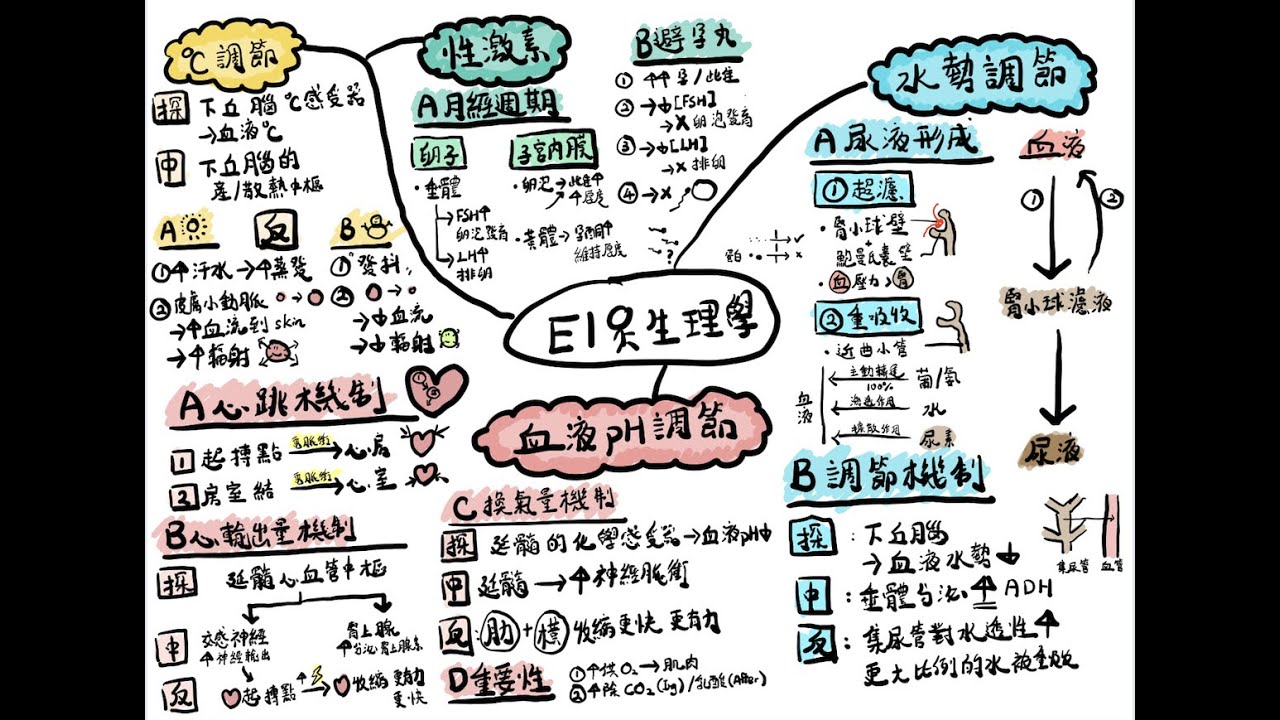 E1 人生理學
°C調節
探 下丘腦°C感受器
→血液°C
中 下丘腦的
產/散熱中樞
A 反 B
①↑汗水→↑蒸發
②皮膚小動脈
→↑血流到 skin
→↑輻射
① 發抖
②
→↓血流
→↓輻射
性激素
A月經週期
卵子
・垂體
→FSH↑
卵泡發育
→LH↑
排卵
子宮內膜
・卵泡→此隹↑
↑厚度
・黃體→孕酮↑
維持厚度
B避孕丸
①↑↑孕/此隹
②→↓[FSH]
→X 卵泡發育
③→↓[LH]
→X 排卵
④→X
?
水勢調節
A尿液形成
①超濾
・腎小球壁
+
鮑曼氏囊壁
・血壓力>腎
蛋白
②重吸收
・近曲小管
血液
主動轉運
100%
葡/氨
滲透作用
水
擴散作用
尿素
血液
① ②
腎小球濾液
尿液
B調節機制
探：下丘腦
→血液水勢↓
中：垂體分泌↑ADH
反：集尿管對水透性↑
更大比例的水被重吸
集尿管 血管
血液pH調節
A心跳機制
① ②
1 起搏點 電脈衝→心房
2 房室結 電脈衝→心室
B心輸出量機制
探 延髓心血管中樞
中 交感神經
↑神經輸出
腎上腺
↑分泌腎上腺素
反 起搏點→收縮更有力
更快
C換氣量機制
探 延髓的化學感受器→血液pH↓
中 延髓→↑神經脈衝
反：肋+橫 收縮更快 更有力
D重要性
①↑供O₂→肌肉
②↑除CO₂(Ing)/乳酸(After)